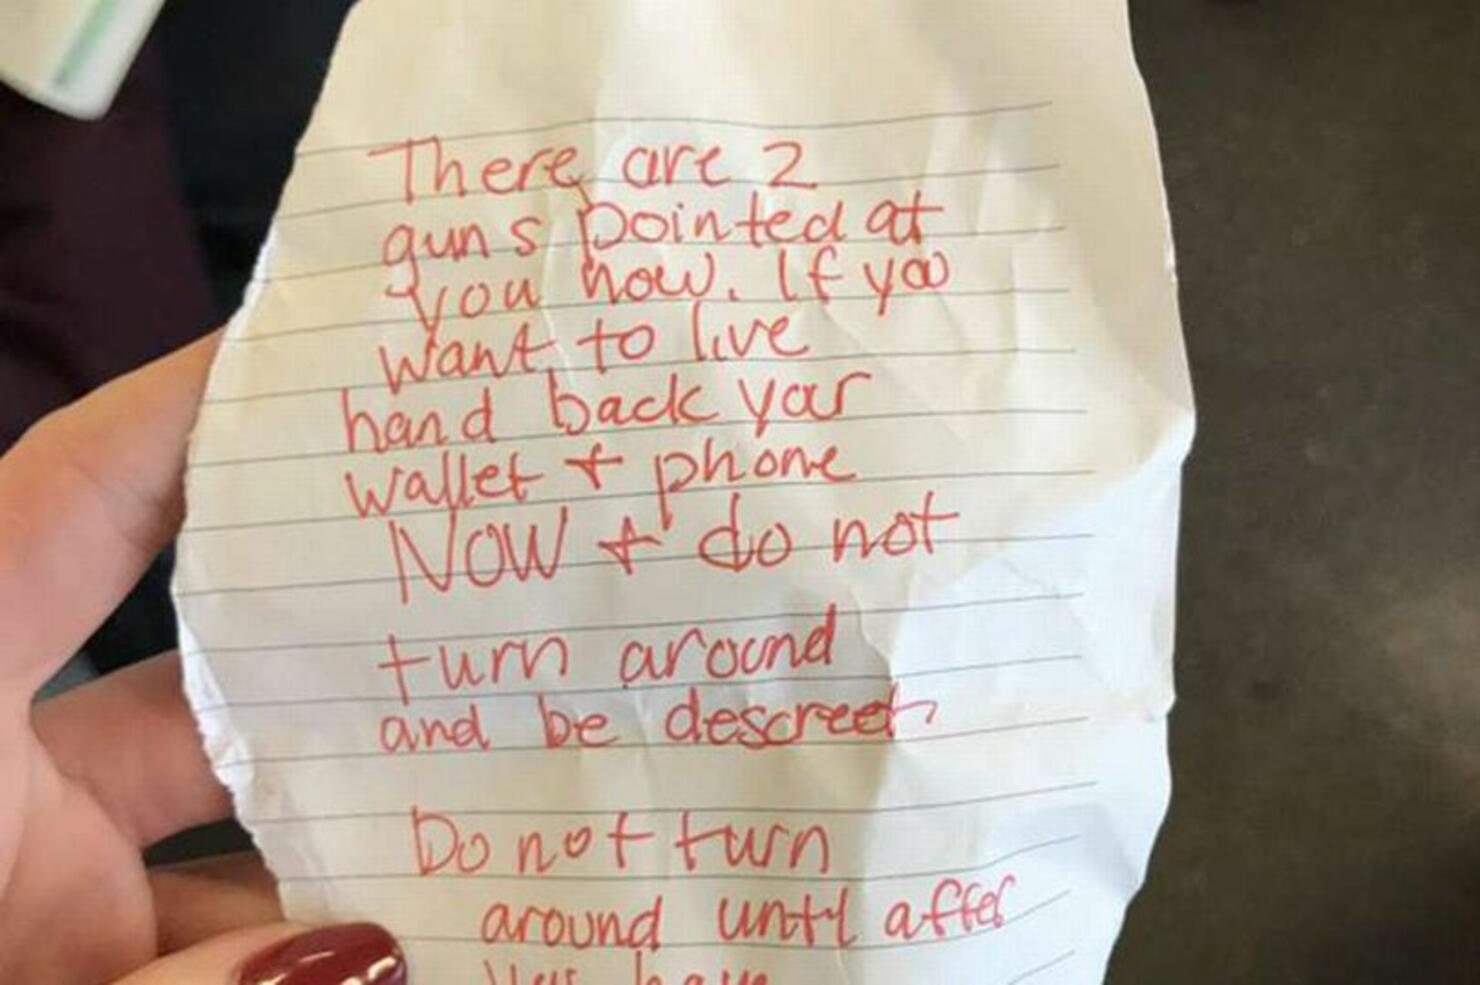 There are 2
guns pointed at
you now. If you
want to live
hand back your
wallet + phone
NOW + do not
turn around
and be descreet
Do not turn
around until after
have